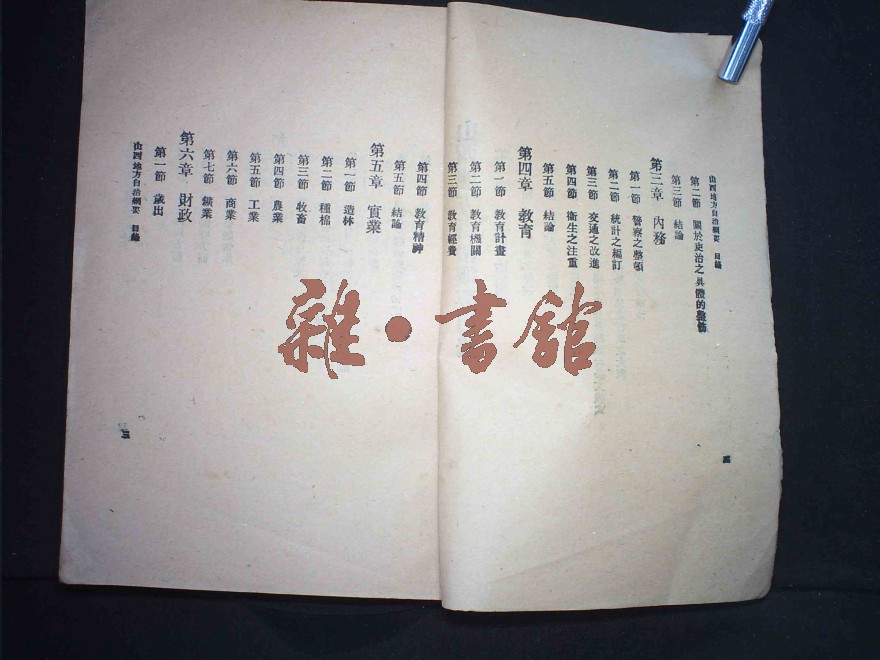 山西地方自治綱要 目錄
第二節 關於吏治之具體的整飭
第三節 結論
第三章 內務
第一節 警察之整頓
第二節 統計之編訂
第三節 交通之改進
第四節 衞生之注重
第五節 結論
第四章 教育
第一節 教育計畫
第二節 教育機關
第三節 教育經費
第四節 教育精神
第五節 結論
第五章 實業
第一節 造林
第二節 種棉
第三節 牧畜
第四節 農業
第五節 工業
第六節 商業
第七節 鑛業
第六章 財政
第一節 歲出
山西地方自治綱要 目錄
雜·書館